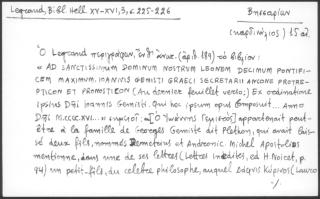 Legrand, Bibl. Hell. XV-XVI, 3, σ. 225-226
Βησσαρίων
(καρδινάλιος) 15 αἰ.
Ὁ Legrand περιγράφων, (ἀριθ. 189) τὸ βιβλίον:
« AD SANCTISSIMUM DOMINUM NOSTRUM LEONEM DECIMUM PONTIFI-
CEM MAXIMUM, IOANNIS GEMISTI GRAECI SECRETARII ANCONE PROTRE-
PTICON ET PROMOSTICON (Au dernier feuillet verso;) Ex ordinatione
ipsius Dñi Joannis Gemisti. Qui hoc ipsum opus composuit... Anno
Dñi M.CCCC.XVI... » σημειοῖ: «[Ὁ Ἰωάννης Γεμιστὸς] appartenait peut-
être à la famille de Georges Gemiste dit Plethon, qui avait lais-
sé deux fils, nommés Demetrius et Andronic. Michel Apostolios
mentionne, dans une de ses lettres (Lettres inédites, ed H. Noiret, p.
94) un petit-fils, du célèbre philosophe, auquel Γεώργιος Κύριλος (Laurco
./.